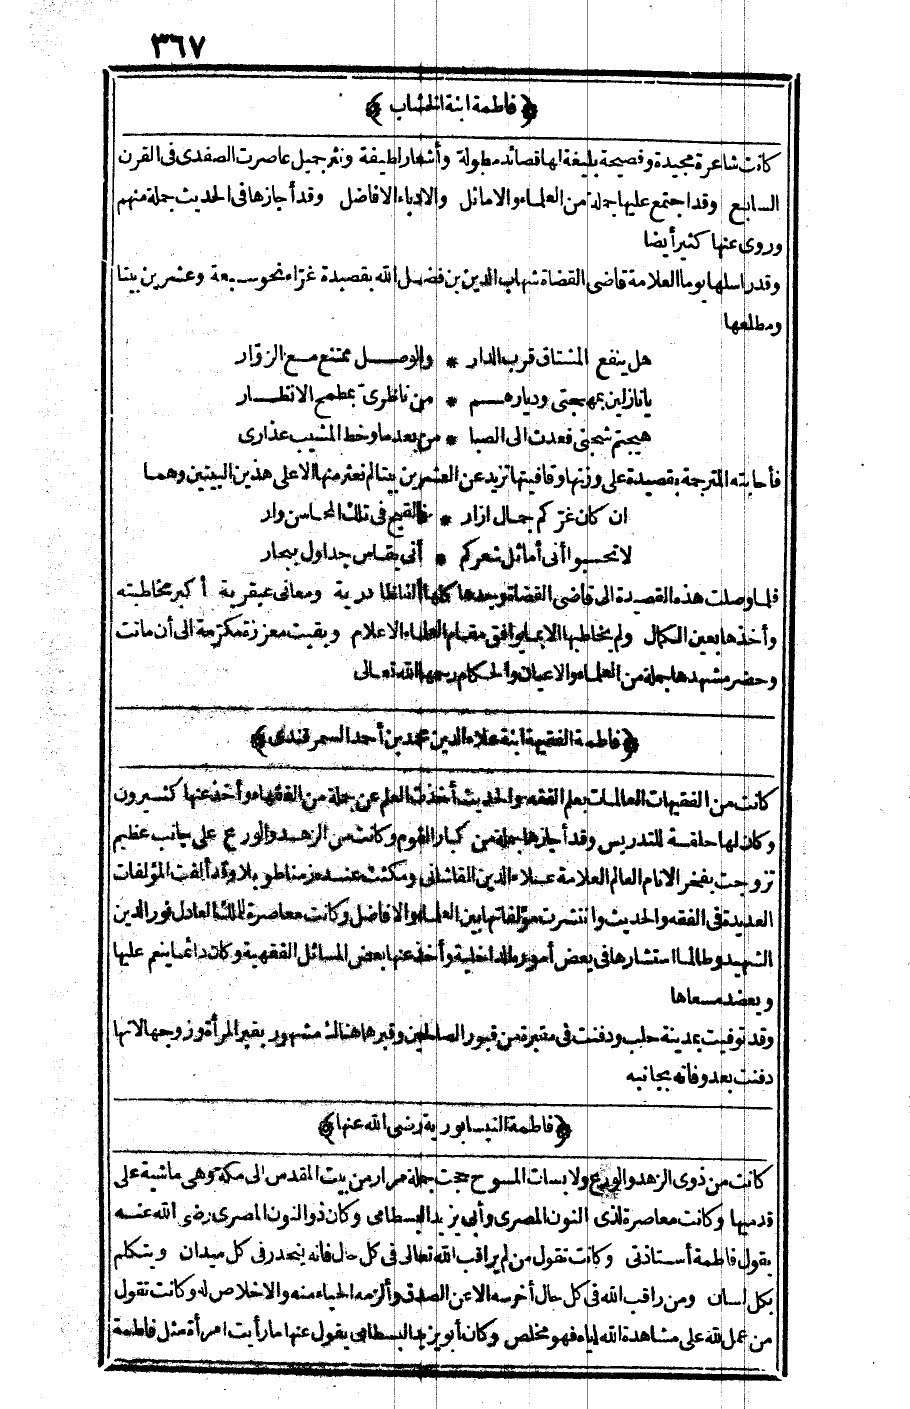 ٣٦٧
﴿ فاطمة ابنة الخشاب ﴾
كانت شاعرة مجيدة وفصيحة بليغة لها قصائد مطولة وأشعار لطيفة ونثر جميل عاصرت الصفدى فى القرن
السابع وقد اجتمع عليها جملة من العلماء والاماثل والادباء الافاضل وقد أجازها فى الحديث جملة منهم
وروى عنها كثير أيضا
وقد راسلها يوما العلامة قاضى القضاة شهاب الدين بن فضل الله بقصيدة غراء نحو سبعة وعشرين بيتا
ومطلعها
هل ينفع المشتاق قرب الدار * والوصل ممتنع مع الزوّار
يا نازلين بمهجتى وديارهم * من ناظرىّ بمطمح الانظار
هيجتم شجنى فعدت الى الصبا * من بعد ما وخط المشيب عذارى
فأجابته المترجمة بقصيدة على وزنها وقافيتها تزيد عن العشرين بيتا لم نعثر منها الا على هذين البيتين وهما
ان كان غركم جمال ازار * فالقبح فى تلك المحاسن وار
لا تحسبوا أنى أماثل شعركم * أنى يقاس جداول ببحار
فلما وصلت هذه القصيدة الى قاضى القضاة وجدها كلها ألفاظا درية ومعانى عبقرية أكبر مخاطبته
وأخذها بعين الكمال ولم يخاطبها الا بما يوافق مقام العلماء الاعلام وبقيت معززة مكرّمة الى أن ماتت
وحضر مشهدها جملة من العلماء والاعيان والحكام رحمها الله تعالى
﴿ فاطمة الفقيهة ابنة علاء الدين محمد بن أحمد السمرقندى ﴾
كانت من الفقيهات العالمات بعلم الفقه والحديث أخذت العلم عن جملة من الفقهاء وأخذ عنها كثيرون
وكان لها حلقة للتدريس وقد أجازها جملة من كبار القوم وكانت من الزهد والورع على جانب عظيم
تزوجت بفخر الانام العالم العلامة علاء الدين القاشانى ومكثت عنده زمنا طويلا وقد ألفت المؤلفات
العديدة فى الفقه والحديث وانتشرت مؤلفاتها بين العلماء والافاضل وكانت معاصرة للملك العادل نور الدين
الشهيد وطالما استشارها فى بعض أموره الداخلية وأخذ عنها بعض المسائل الفقهية وكان دائما ينعم عليها
ويعضد مسعاها
وقد توفيت بمدينة حلب ودفنت فى مقبرة من قبور الصالحين وقبرها هناك مشهور بقبر المرأة وزوجها لانها
دفنت بعد وفاته بجانبه
﴿ فاطمة النيسابورية رضى الله عنها ﴾
كانت من ذوى الزهد والورع ولابسات المسوح حجت جملة مرار من بيت المقدس الى مكة وهى ماشية على
قدميها وكانت معاصرة لذى النون المصرى وأبى يزيد البسطامى وكان ذو النون المصرى رضى الله عنه
يقول فاطمة أستاذتى وكانت تقول من لم يراقب الله تعالى فى كل حال فانه ينحدر فى كل ميدان ويتكلم
بكل لسان ومن راقب الله فى كل حال أخرسه الا عن الصدق وألزمه الحياء منه والاخلاص له وكانت تقول
من عمل لله على مشاهدة الله اياه فهو مخلص وكان أبو يزيد البسطامى يقول عنها ما رأيت امرأة مثل فاطمة